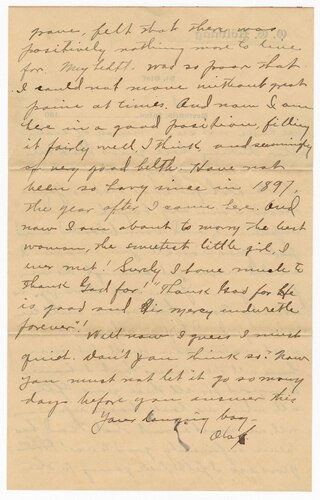 pane, felt that there was
positively nothing more to live
for. My helth was so poor that
I could not move without great
paine at times. And now I am
here in a good position, filling
it fairly well, I think and seemingly
of very good helth. Have not
been so havy since in 1897,
the year after I came here. And
now I am about to marry the best
woman, the sweetest little girl, I
ever met. Surely I have much to
thank God for! "Thank God for He
is good and His mercy endureth
forever"!
Well now I guess I must
quiet. Don't you think so? Now
you must not let it go so many
days before you answer this
Your longing boy-
Olaf